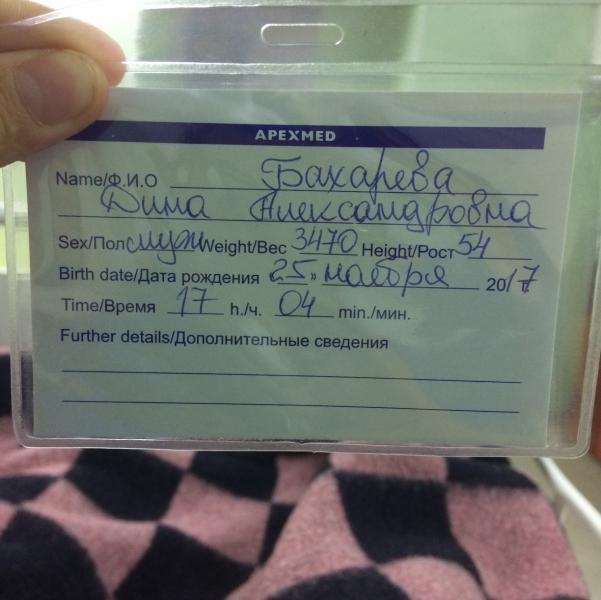 APEXMED
Name/Ф.И.О Бахарева
Дина Александровна
Sex/Пол муж Weight/Вес 3470 Height/Рост 54
Birth date/Дата рождения 25 » ноября 2017
Time/Время 17 h./ч. 04 min./мин.
Further details/Дополнительные сведения